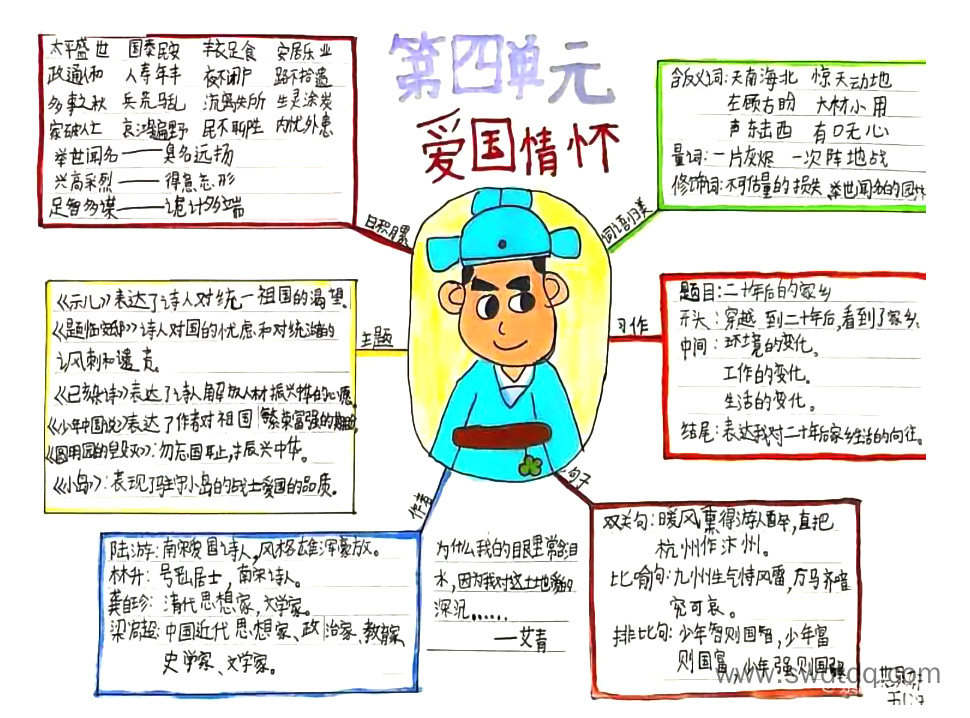 第四单元
爱国情怀
太平盛世 国泰民安 丰衣足食 安居乐业
政通人和 人寿年丰 夜不闭户 路不拾遗
多事之秋 兵荒马乱 流离失所 生灵涂炭
家破人亡 哀鸿遍野 民不聊生 内忧外患
举世闻名——臭名远扬
兴高采烈——得意忘形
足智多谋——诡计多端
日积月累
含反义词:天南海北 惊天动地
左顾右盼 大材小用
声东击西 有口无心
量词:一片灰烬 一次阵地战
修饰词:不可估量的损失 举世闻名的园林
词语归类
《示儿》表达了诗人对统一祖国的渴望。
《题临安邸》诗人对国的忧虑和对统治者的
讽刺和谴责。
《己亥杂诗》表达了诗人解放人材振兴的心愿。
《少年中国说》表达了作者对祖国繁荣富强的期盼
《圆明园的毁灭》:勿忘国耻,振兴中华。
《小岛》:表现了驻守小岛的战士爱国的品质。
主题
习作
题目:二十年后的家乡
开头:穿越到二十年后,看到了家乡。
中间:环境的变化。
工作的变化。
生活的变化。
结尾:表达我对二十年后家乡生活的向往。
作者
陆游:南宋爱国诗人,风格雄浑豪放。
林升:号平山居士,南宋诗人。
龚自珍:清代思想家,文学家。
梁启超:中国近代思想家、政治家、教育家
史学家、文学家。
为什么我的眼里常含泪
水,因为我对这土地爱的
深沉……
——艾青
句子
双关句:暖风熏得游人醉,直把
杭州作汴州。
比喻句:九州生气恃风雷,万马齐喑
究可哀。
排比句:少年智则国智,少年富
则国富,少年强则国强
www.swdtqq.com